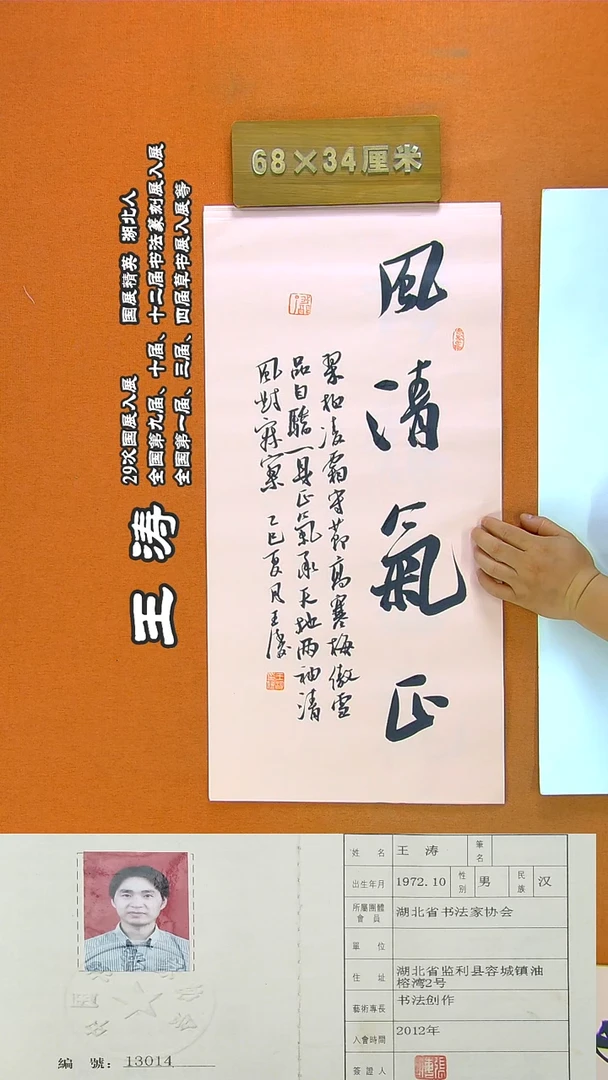 68×34厘米
風清氣正
翠柏凌霜守節高寒梅傲雪
品自驕一身正氣承天地兩袖清
風對寂寥 乙巳夏月王濤
王涛
29次国展入展 国展精英 湖北人
全国第九届、十届、十二届书法篆刻展入展
全国第一届、三届、四届草书展入展等
編 號：13014
姓 名 王 涛 筆名
出生年月 1972.10 性別 男 民族 汉
所屬團體會員 湖北省书法家协会
單 位
住 址 湖北省监利县容城镇油
榕湾2号
藝術專長 书法创作
入會時間 2012年
簽證人